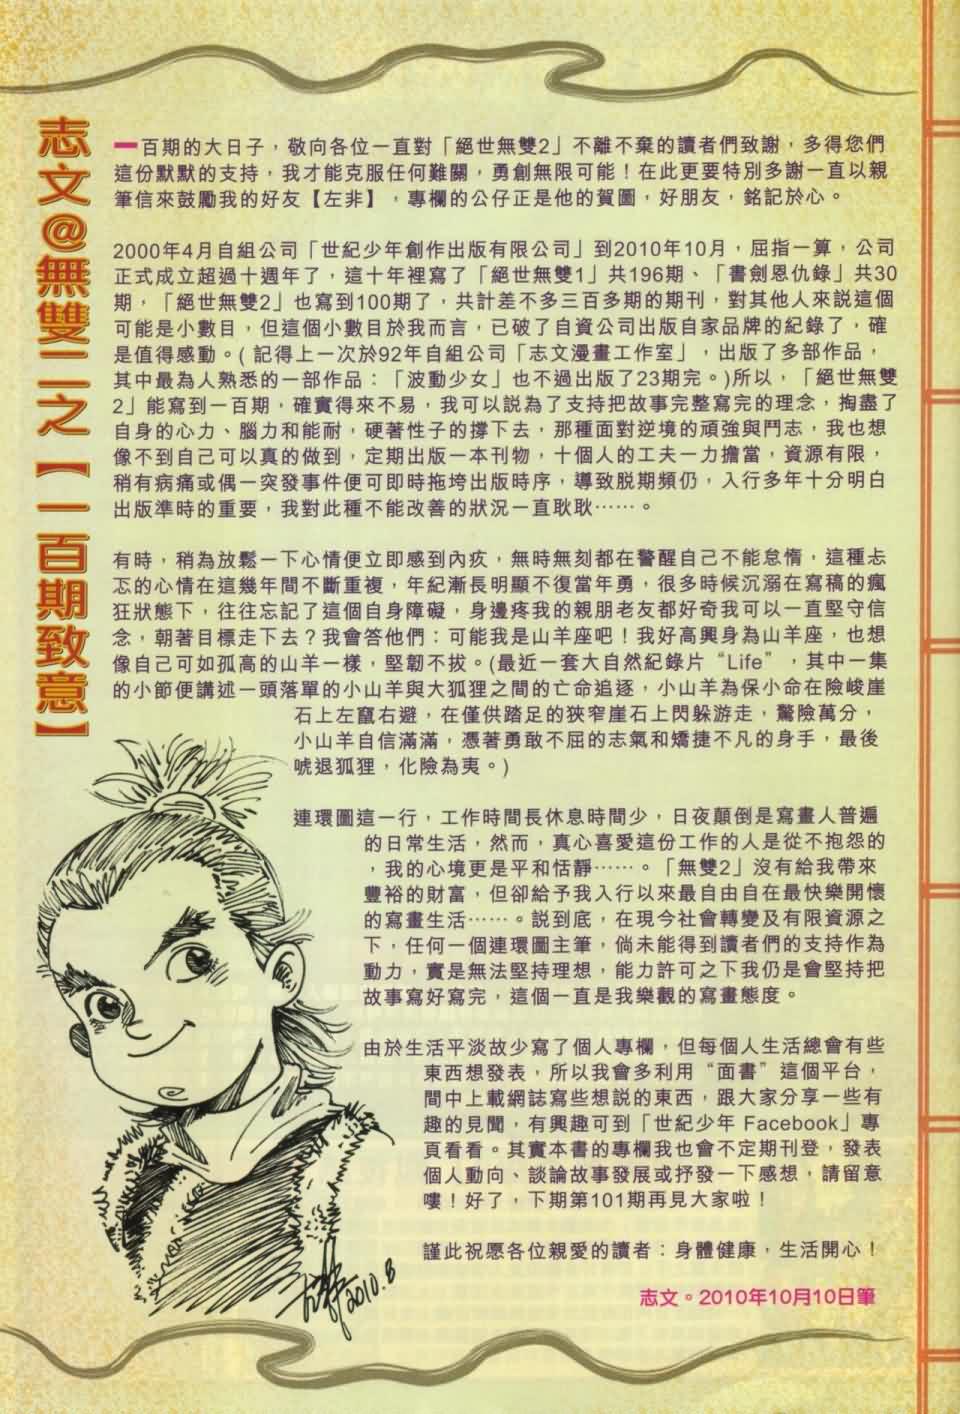 志文@無雙二之【一百期致意】
一百期的大日子，敬向各位一直對「絕世無雙2」不離不棄的讀者們致謝，多得您們
這份默默的支持，我才能克服任何難關，勇創無限可能！在此更要特別多謝一直以親
筆信來鼓勵我的好友【左非】，專欄的公仔正是他的賀圖，好朋友，銘記於心。
2000年4月自組公司「世紀少年創作出版有限公司」到2010年10月，屈指一算，公司
正式成立超過十週年了，這十年裡寫了「絕世無雙1」共196期、「書劍恩仇錄」共30
期，「絕世無雙2」也寫到100期了，共計差不多三百多期的期刊，對其他人來說這個
可能是小數目，但這個小數目於我而言，已破了自資公司出版自家品牌的紀錄了，確
是值得感動。( 記得上一次於92年自組公司「志文漫畫工作室」，出版了多部作品，
其中最為人熟悉的一部作品：「波動少女」也不過出版了23期完。)所以，「絕世無雙
2」能寫到一百期，確實得來不易，我可以說為了支持把故事完整寫完的理念，掏盡了
自身的心力、腦力和能耐，硬著性子的撐下去，那種面對逆境的頑強與鬥志，我也想
像不到自己可以真的做到，定期出版一本刊物，十個人的工夫一力擔當，資源有限，
稍有病痛或偶一突發事件便可即時拖垮出版時序，導致脫期頻仍，入行多年十分明白
出版準時的重要，我對此種不能改善的狀況一直耿耿⋯⋯。
有時，稍為放鬆一下心情便立即感到內疚，無時無刻都在警醒自己不能怠惰，這種忐
忑的心情在這幾年間不斷重複，年紀漸長明顯不復當年勇，很多時候沉溺在寫稿的瘋
狂狀態下，往往忘記了這個自身障礙，身邊疼我的親朋老友都好奇我可以一直堅守信
念，朝著目標走下去？我會答他們：可能我是山羊座吧！我好高興身為山羊座，也想
像自己可如孤高的山羊一樣，堅韌不拔。(最近一套大自然紀錄片“Life”，其中一集
的小節便講述一頭落單的小山羊與大狐狸之間的亡命追逐，小山羊為保小命在險峻崖
石上左竄右避，在僅供踏足的狹窄崖石上閃躲游走，驚險萬分，
小山羊自信滿滿，憑著勇敢不屈的志氣和矯捷不凡的身手，最後
唬退狐狸，化險為夷。)
連環圖這一行，工作時間長休息時間少，日夜顛倒是寫畫人普遍
的日常生活，然而，真心喜愛這份工作的人是從不抱怨的
，我的心境更是平和恬靜⋯⋯。「無雙2」沒有給我帶來
豐裕的財富，但卻給予我入行以來最自由自在最快樂開懷
的寫畫生活⋯⋯。說到底，在現今社會轉變及有限資源之
下，任何一個連環圖主筆，倘未能得到讀者們的支持作為
動力，實是無法堅持理想，能力許可之下我仍是會堅持把
故事寫好寫完，這個一直是我樂觀的寫畫態度。
由於生活平淡故少寫了個人專欄，但每個人生活總會有些
東西想發表，所以我會多利用“面書”這個平台，
間中上載網誌寫些想說的東西，跟大家分享一些有
趣的見聞，有興趣可到「世紀少年 Facebook」專
頁看看。其實本書的專欄我也會不定期刊登，發表
個人動向、談論故事發展或抒發一下感想，請留意
嘍！好了，下期第101期再見大家啦！
謹此祝愿各位親愛的讀者：身體健康，生活開心！
志文。2010年10月10日筆
2010.8